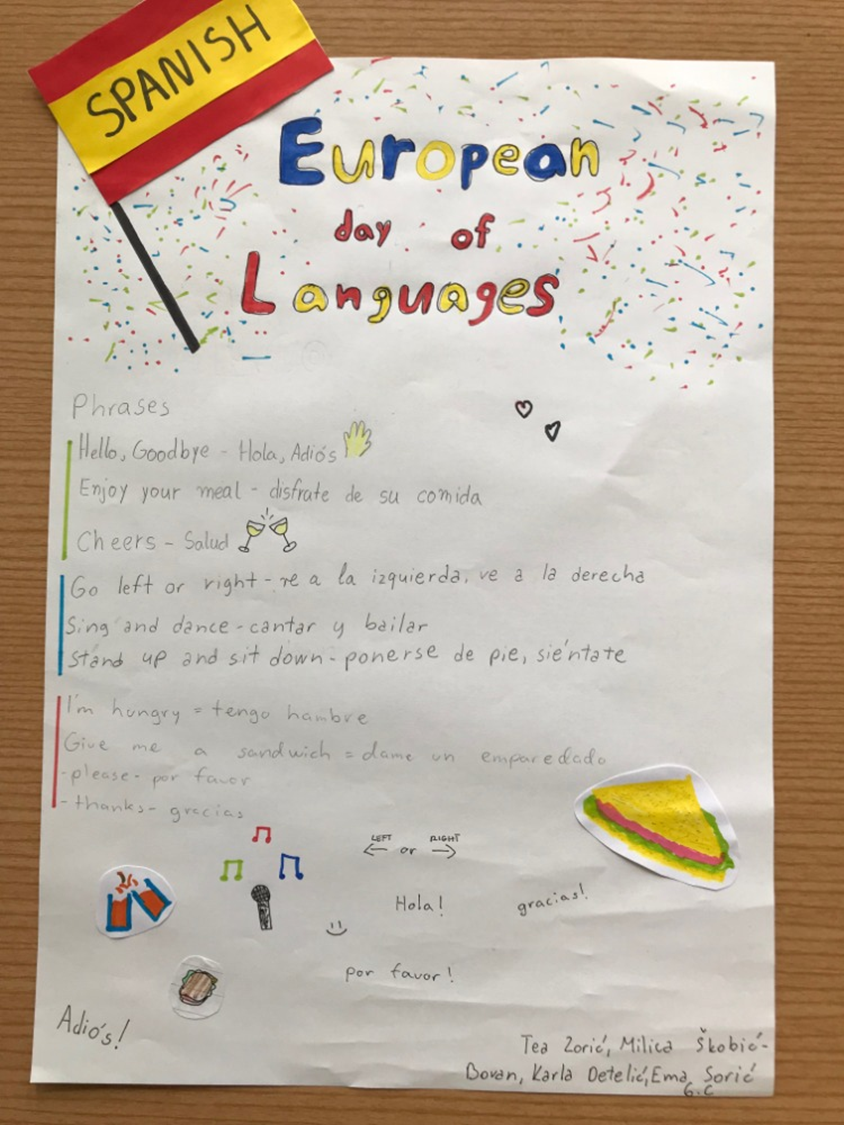 SPANISH
European
day of
Languages
Phrases
Hello, Goodbye - Hola, Adiós
Enjoy your meal - disfrate de su comida
Cheers - Salud
Go left or right - ve a la izquierda, ve a la derecha
Sing and dance - cantar y bailar
Stand up and sit down - ponerse de pie, siéntate
I'm hungry = tengo hambre
Give me a sandwich = dame un emparedado
-please- por favor
-thanks- gracias
LEFT or RIGHT
Hola!
gracias!
por favor!
Adiós!
Tea Zorić, Milica Škobić-
Bovan, Karla Detelić, Ema Sorić
6.c